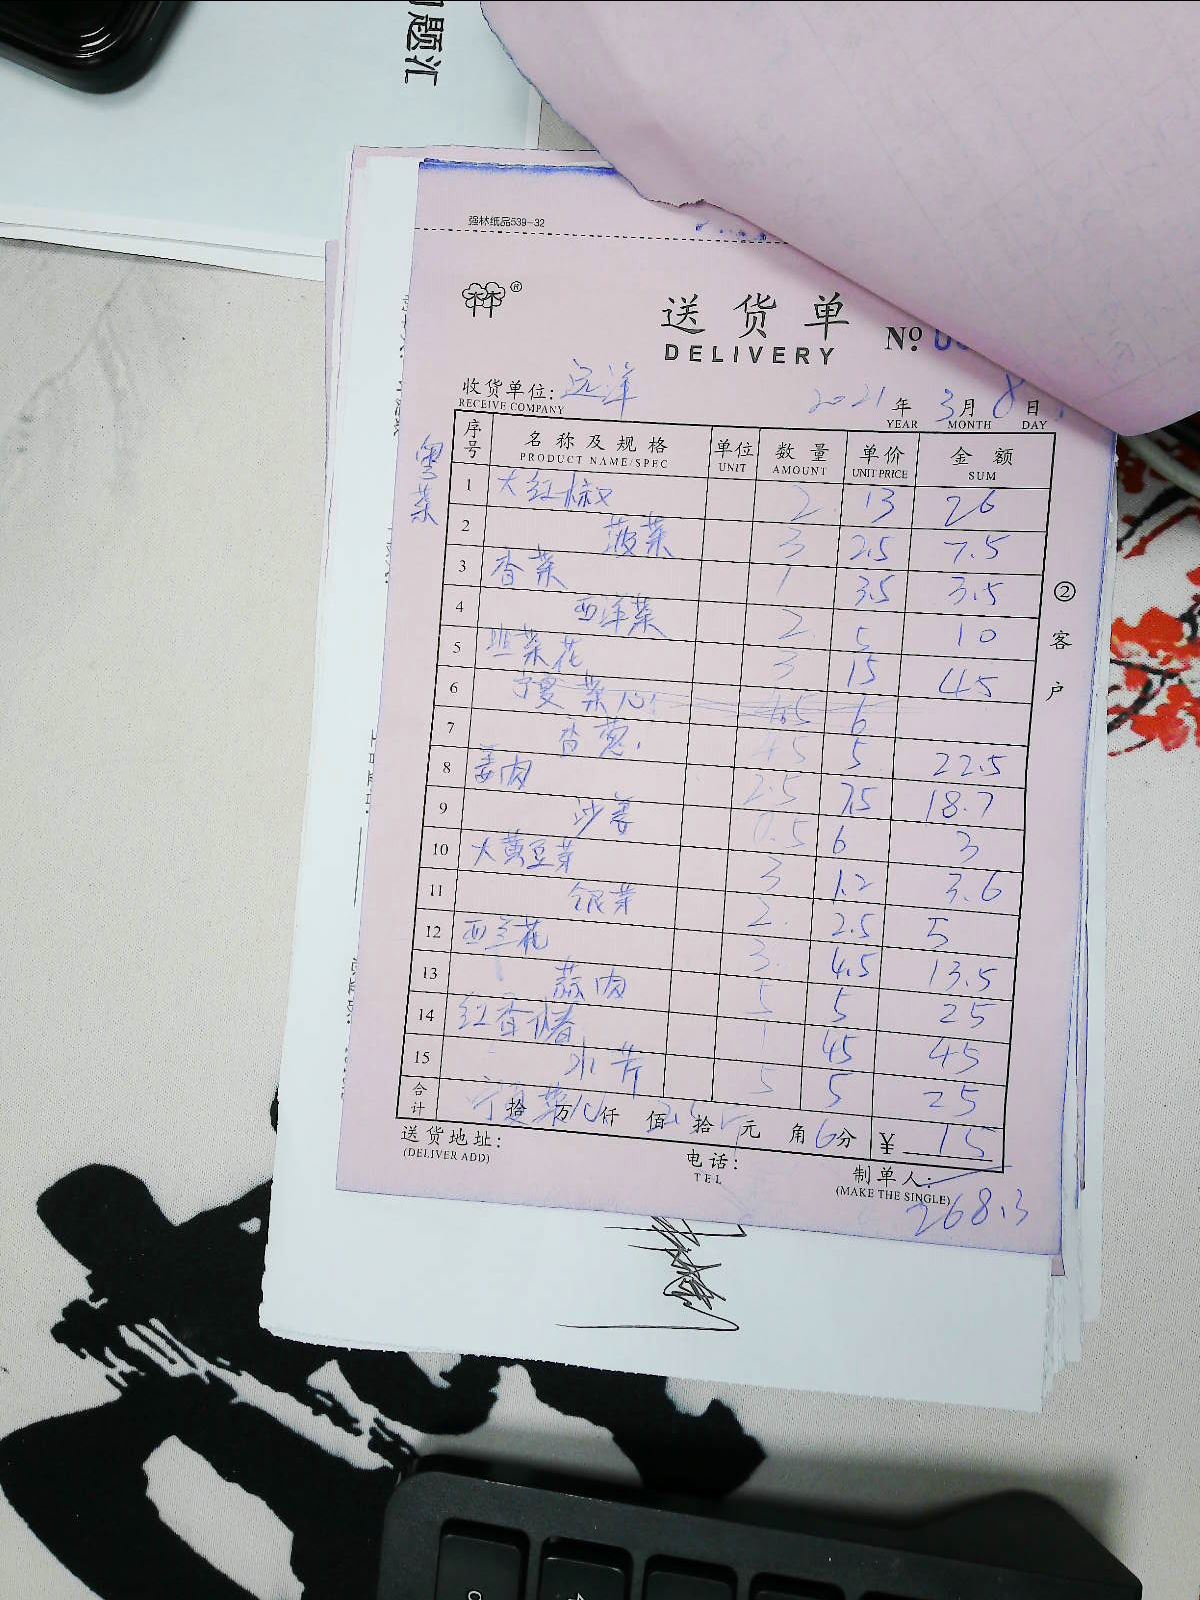 题汇
强林纸品539-32
®
送货单
DELIVERY
No
收货单位: 远洋
RECEIVE COMPANY
2021年 3月 8日
YEAR MONTH DAY
粤菜
序号 名称及规格 单位 数量 单价 金额
PRODUCT NAME/SPEC UNIT AMOUNT UNIT PRICE SUM
1 大红椒 2 13 26
2 菠菜 3 2.5 7.5
3 香菜 1 3.5 3.5
4 西洋菜 2 5 10
5 韭菜花 3 15 45
6 宁夏菜心 6
7 香葱 4.5 5 22.5
8 姜肉 2.5 7.5 18.7
9 沙姜 0.5 6 3
10 大黄豆芽 3 1.2 3.6
11 银芽 2 2.5 5
12 西兰花 3 4.5 13.5
13 蒜肉 5 5 25
14 红香椿 1 45 45
15 水芹 5 5 25
宁夏菜心 2.5 6 15
合计 拾 万 仟 佰 拾 元 角 分 ¥
送货地址: 电话: 制单人:
(DELIVER ADD) TEL (MAKE THE SINGLE)
268.3
②客户